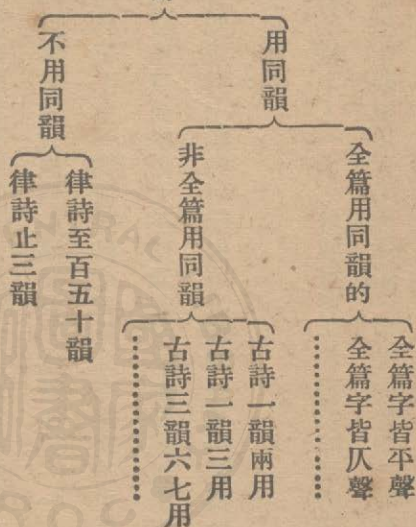 用同韻
全篇用同韻的
全篇字皆平聲
全篇字皆仄聲
…………
非全篇用同韻
古詩一韻兩用
古詩一韻三用
古詩三韻六七用
…………
不用同韻
律詩至百五十韻
律詩止三韻